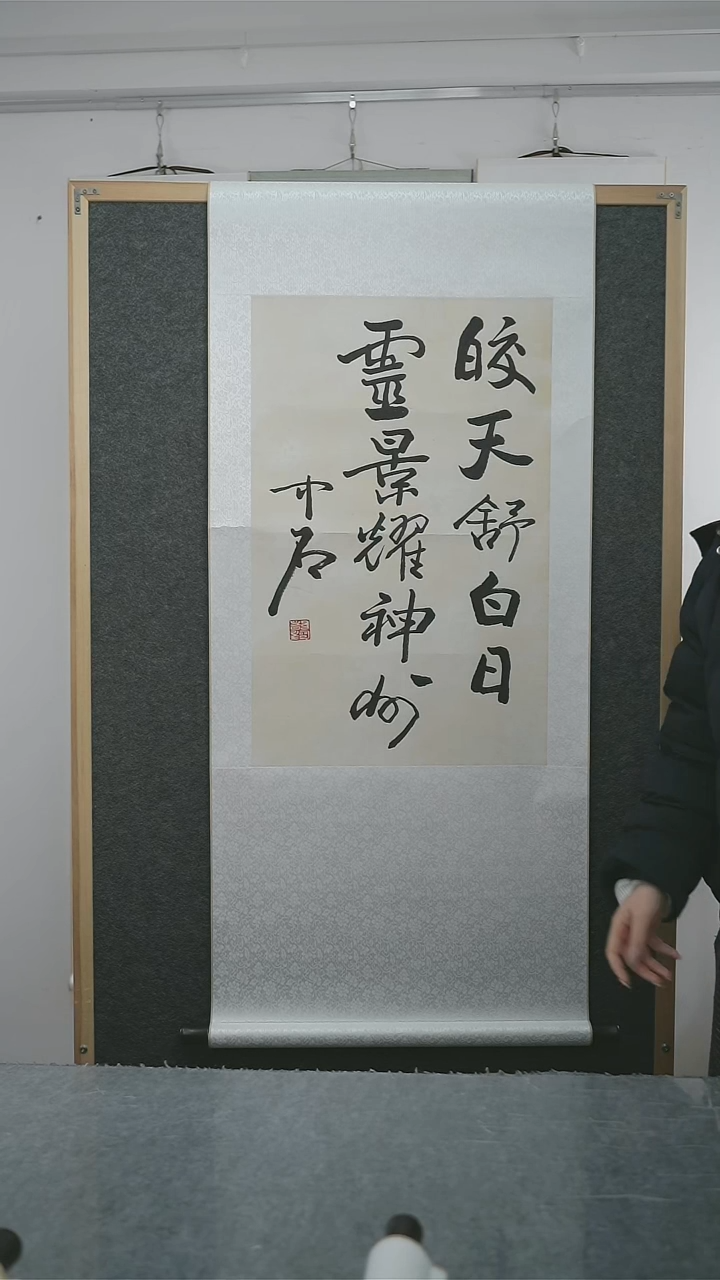 皎天舒白日
靈景耀神州
中石